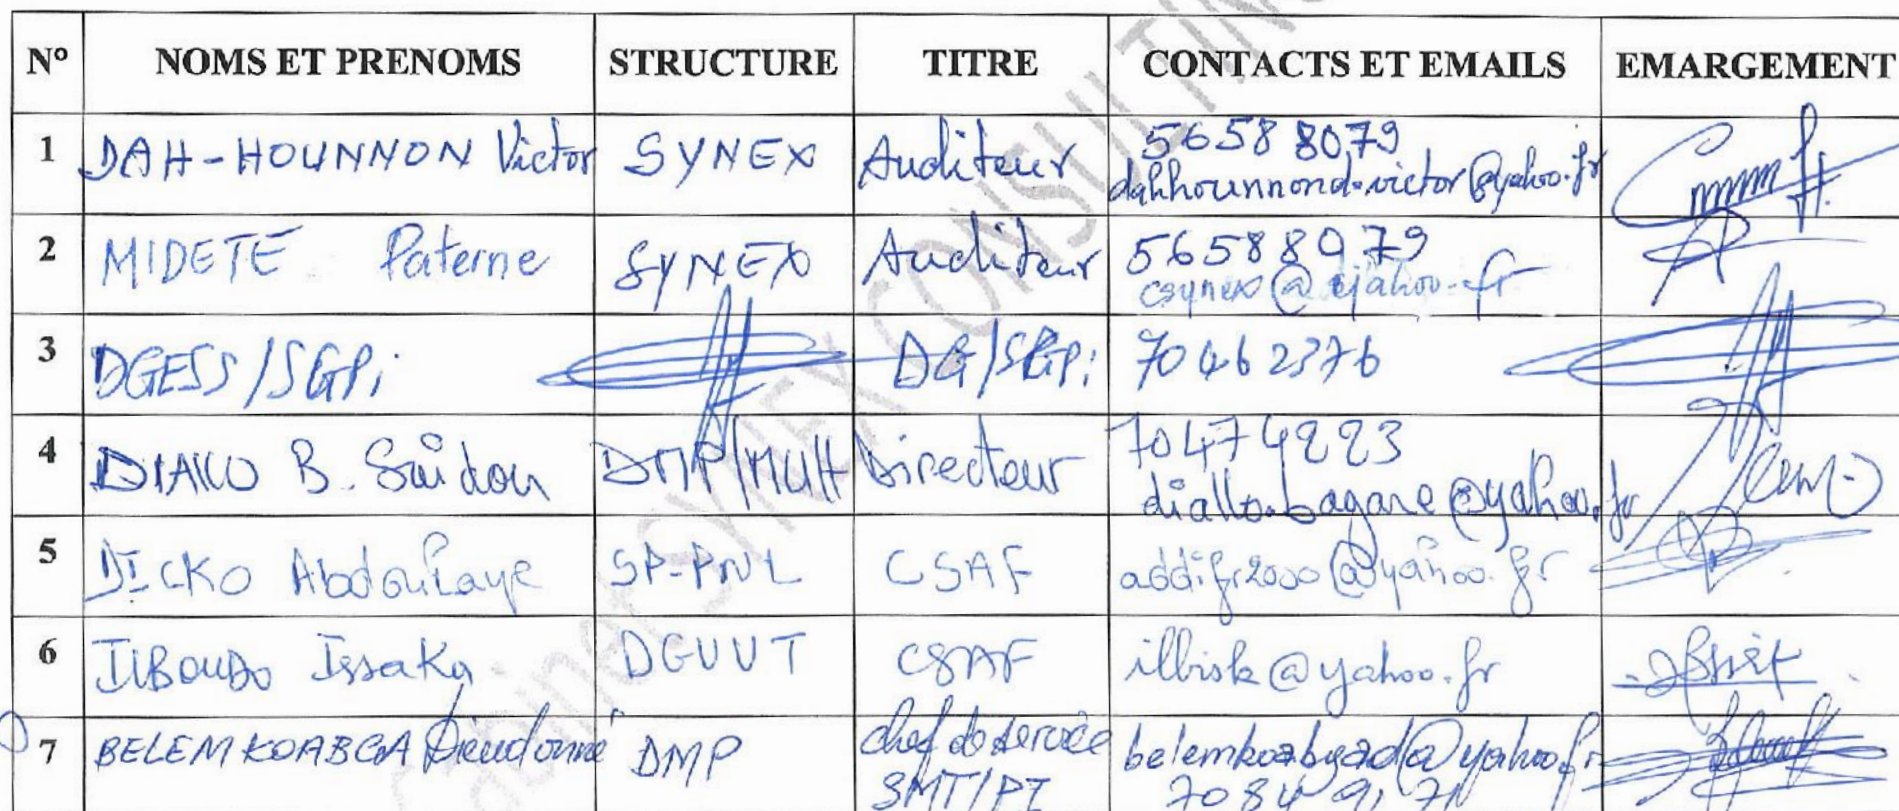 N° NOMS ET PRENOMS STRUCTURE TITRE CONTACTS ET EMAILS EMARGEMENT
1 DAH-HOUNNON Victor SYNEX Auditeur 56588079
dahhounnond.victor@yahoo.fr
2 MIDETE Paterne SYNEX Auditeur 56588079
csynex@yahoo.fr
3 DGESS/SGPi DG/SGPi 70462376
4 DIALLO B. Saïdou DMP/MUH Directeur 70474223
diallo.bagare@yahoo.fr
5 DICKO Abdoulaye SP-PNL CSAF addifr2000@yahoo.fr
6 ILBOUDO Issaka DGUVT CSAF illbisk@yahoo.fr
7 BELEMKOABGA Dieudonné DMP chef de service belemkoabgad@yahoo.fr
SMT/PI 7084 91 71
SYNEX CONSULTING